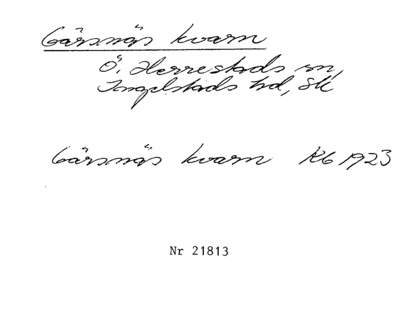 Gärsnäs kvarn
Ö. Herrestads sn
Ingelstads hd, SK
Gärsnäs kvarn RG 1923
Nr 21813